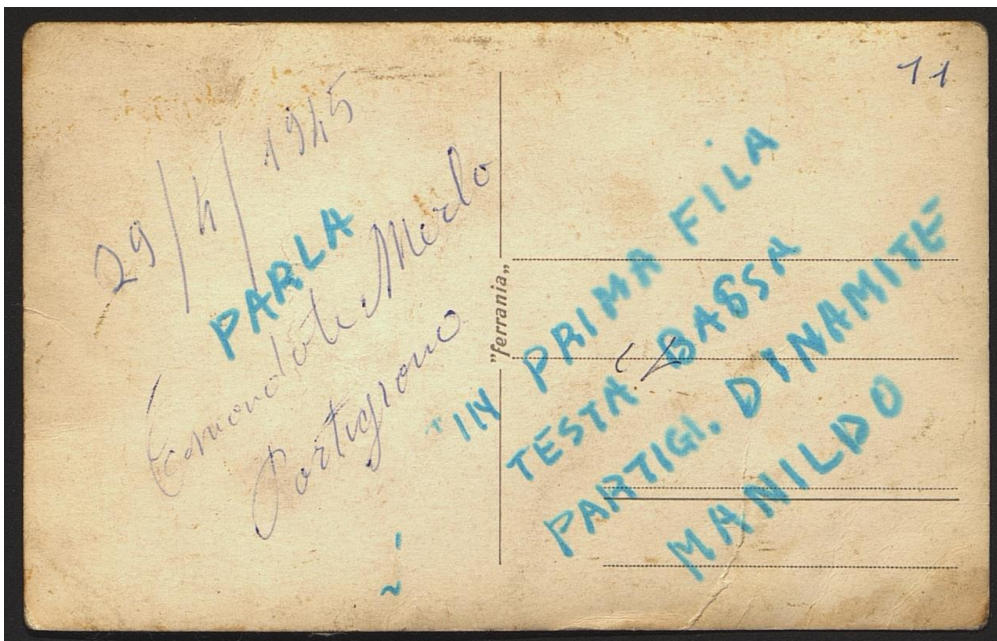 11
29/4/1945
PARLA
Comandate Merlo
Partigiano
"ferrania"
IN PRIMA FILA
TESTA BASSA
PARTIGI. DINAMITE
MANILDO